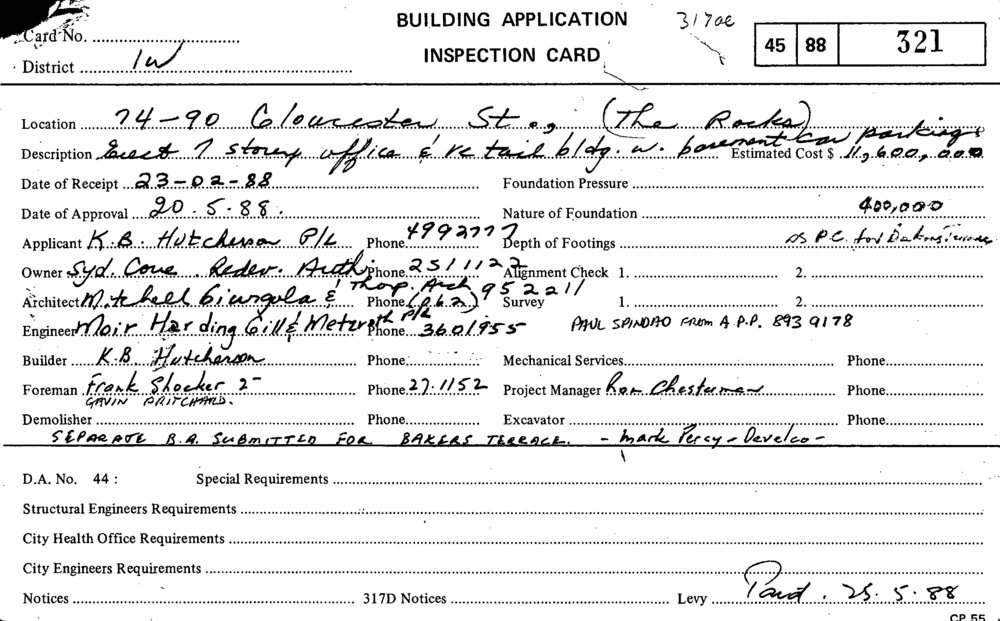 BUILDING APPLICATION 317ae
Card No.
INSPECTION CARD 45 88 321
District 1W
Location 74-90 Gloucester St., (The Rocks)
Description Erect 7 storey office & retail bldg. w. basement car parking Estimated Cost $ 11,600,000
Date of Receipt 23-02-88 Foundation Pressure
Date of Approval 20.5.88. Nature of Foundation 400,000
Applicant K.B. Hutcherson P/L Phone 4992777 Depth of Footings as P.C. for Bakers Terrace
Owner Syd. Cove Redev. Auth. Phone 2511122 Alignment Check 1. 2.
Architect Mitchell Giurgola & Thorp. Arch Phone (p.b.2) 952211 Survey 1. 2.
Engineer Moir Harding Gill & Phone 3601955 PAUL SPINDAO FROM A.P.P. 893 9178
Builder K.B. Hutcherson Phone Mechanical Services Phone
Foreman Frank Shocker 2- Phone 27.1152 Project Manager Ron Chesterman Phone
GAVIN PRITCHARD.
Demolisher Phone Excavator Phone
SEPARATE B.A. SUBMITTED FOR BAKERS TERRACE. - Mark Percy - Develco -
D.A. No. 44 : Special Requirements
Structural Engineers Requirements
City Health Office Requirements
City Engineers Requirements
Notices 317D Notices Levy Paid. 25.5.88
CP 55